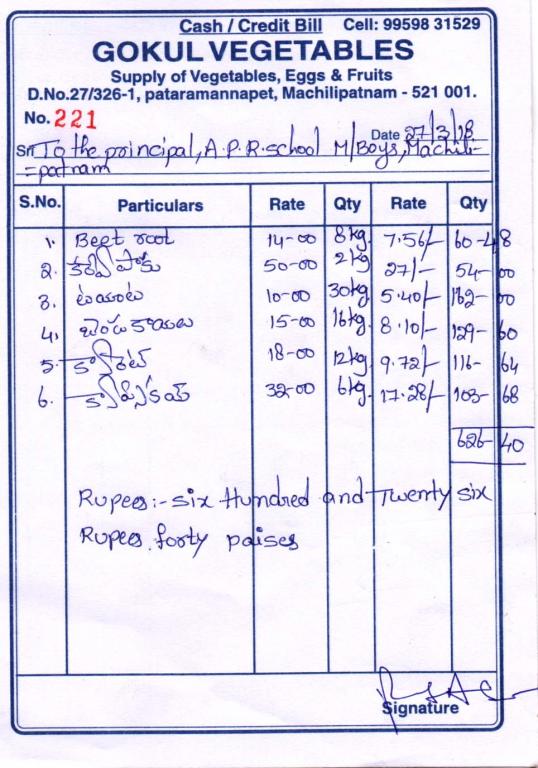 Cash / Credit Bill Cell: 99598 31529
GOKUL VEGETABLES
Supply of Vegetables, Eggs & Fruits
D.No.27/326-1, pataramannapet, Machilipatnam - 521 001.
No. 221
Date 27/3/18
Sri To the principal, A.P.R.school M/Boys, Machili-
=patnam
S.No. Particulars Rate Qty Rate Qty
1. Beet root 14-00 8kg. 7.56/- 60-48
2. కరివేపాకు 50-00 2kg 27/- 54-00
3. టమాట 10-00 30kg 5.40/- 162-00
4. బెండకాయలు 15-00 16kg 8.10/- 129-60
5. క్యారెట్ 18-00 12kg 9.72/- 116-64
6. క్యాప్సికమ్ 32-00 6kg 17.28/- 103-68
626-40
Rupees:- six Hundred and Twenty six
Rupees forty paises
Signature